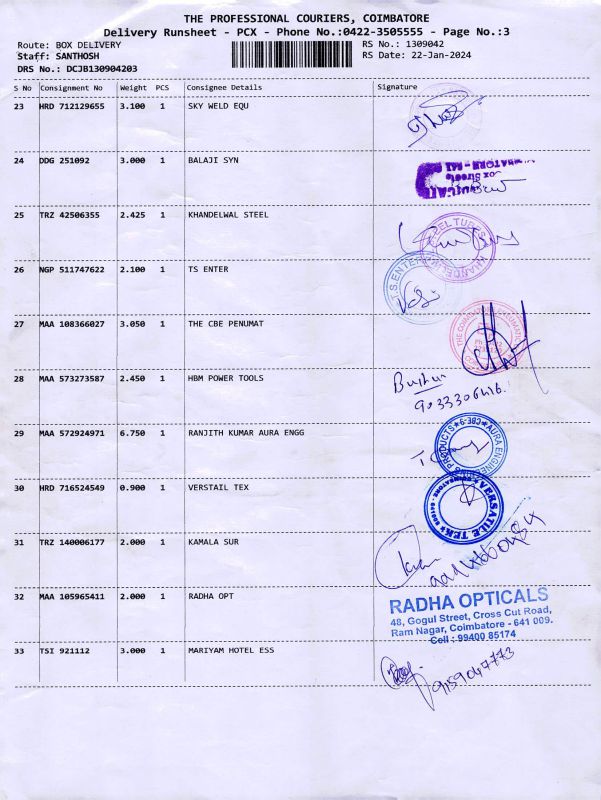 THE PROFESSIONAL COURIERS, COIMBATORE
Delivery Runsheet - PCX - Phone No.:0422-3505555 - Page No.:3
Route: BOX DELIVERY RS No.: 1309042
Staff: SANTHOSH RS Date: 22-Jan-2024
DRS No.: DCJB130904203
S No Consignment No Weight PCS Consignee Details Signature
23 HRD 712129655 3.100 1 SKY WELD EQU
24 DDG 251092 3.000 1 BALAJI SYN
25 TRZ 42506355 2.425 1 KHANDELWAL STEEL
26 NGP 511747622 2.100 1 TS ENTER
27 MAA 108366027 3.050 1 THE CBE PENUMAT
28 MAA 573273587 2.450 1 HBM POWER TOOLS
29 MAA 572924971 6.750 1 RANJITH KUMAR AURA ENGG
AURA ENGINEERING PRODUCTS * CBE-9 *
30 HRD 716524549 0.900 1 VERSTAIL TEX
VERSATILE TEK
31 TRZ 140006177 2.000 1 KAMALA SUR
32 MAA 105965411 2.000 1 RADHA OPT
RADHA OPTICALS
48, Gogul Street, Cross Cut Road,
Ram Nagar, Coimbatore - 641 009.
Cell : 99400 85174
33 TSI 921112 3.000 1 MARIYAM HOTEL ESS
9159047773